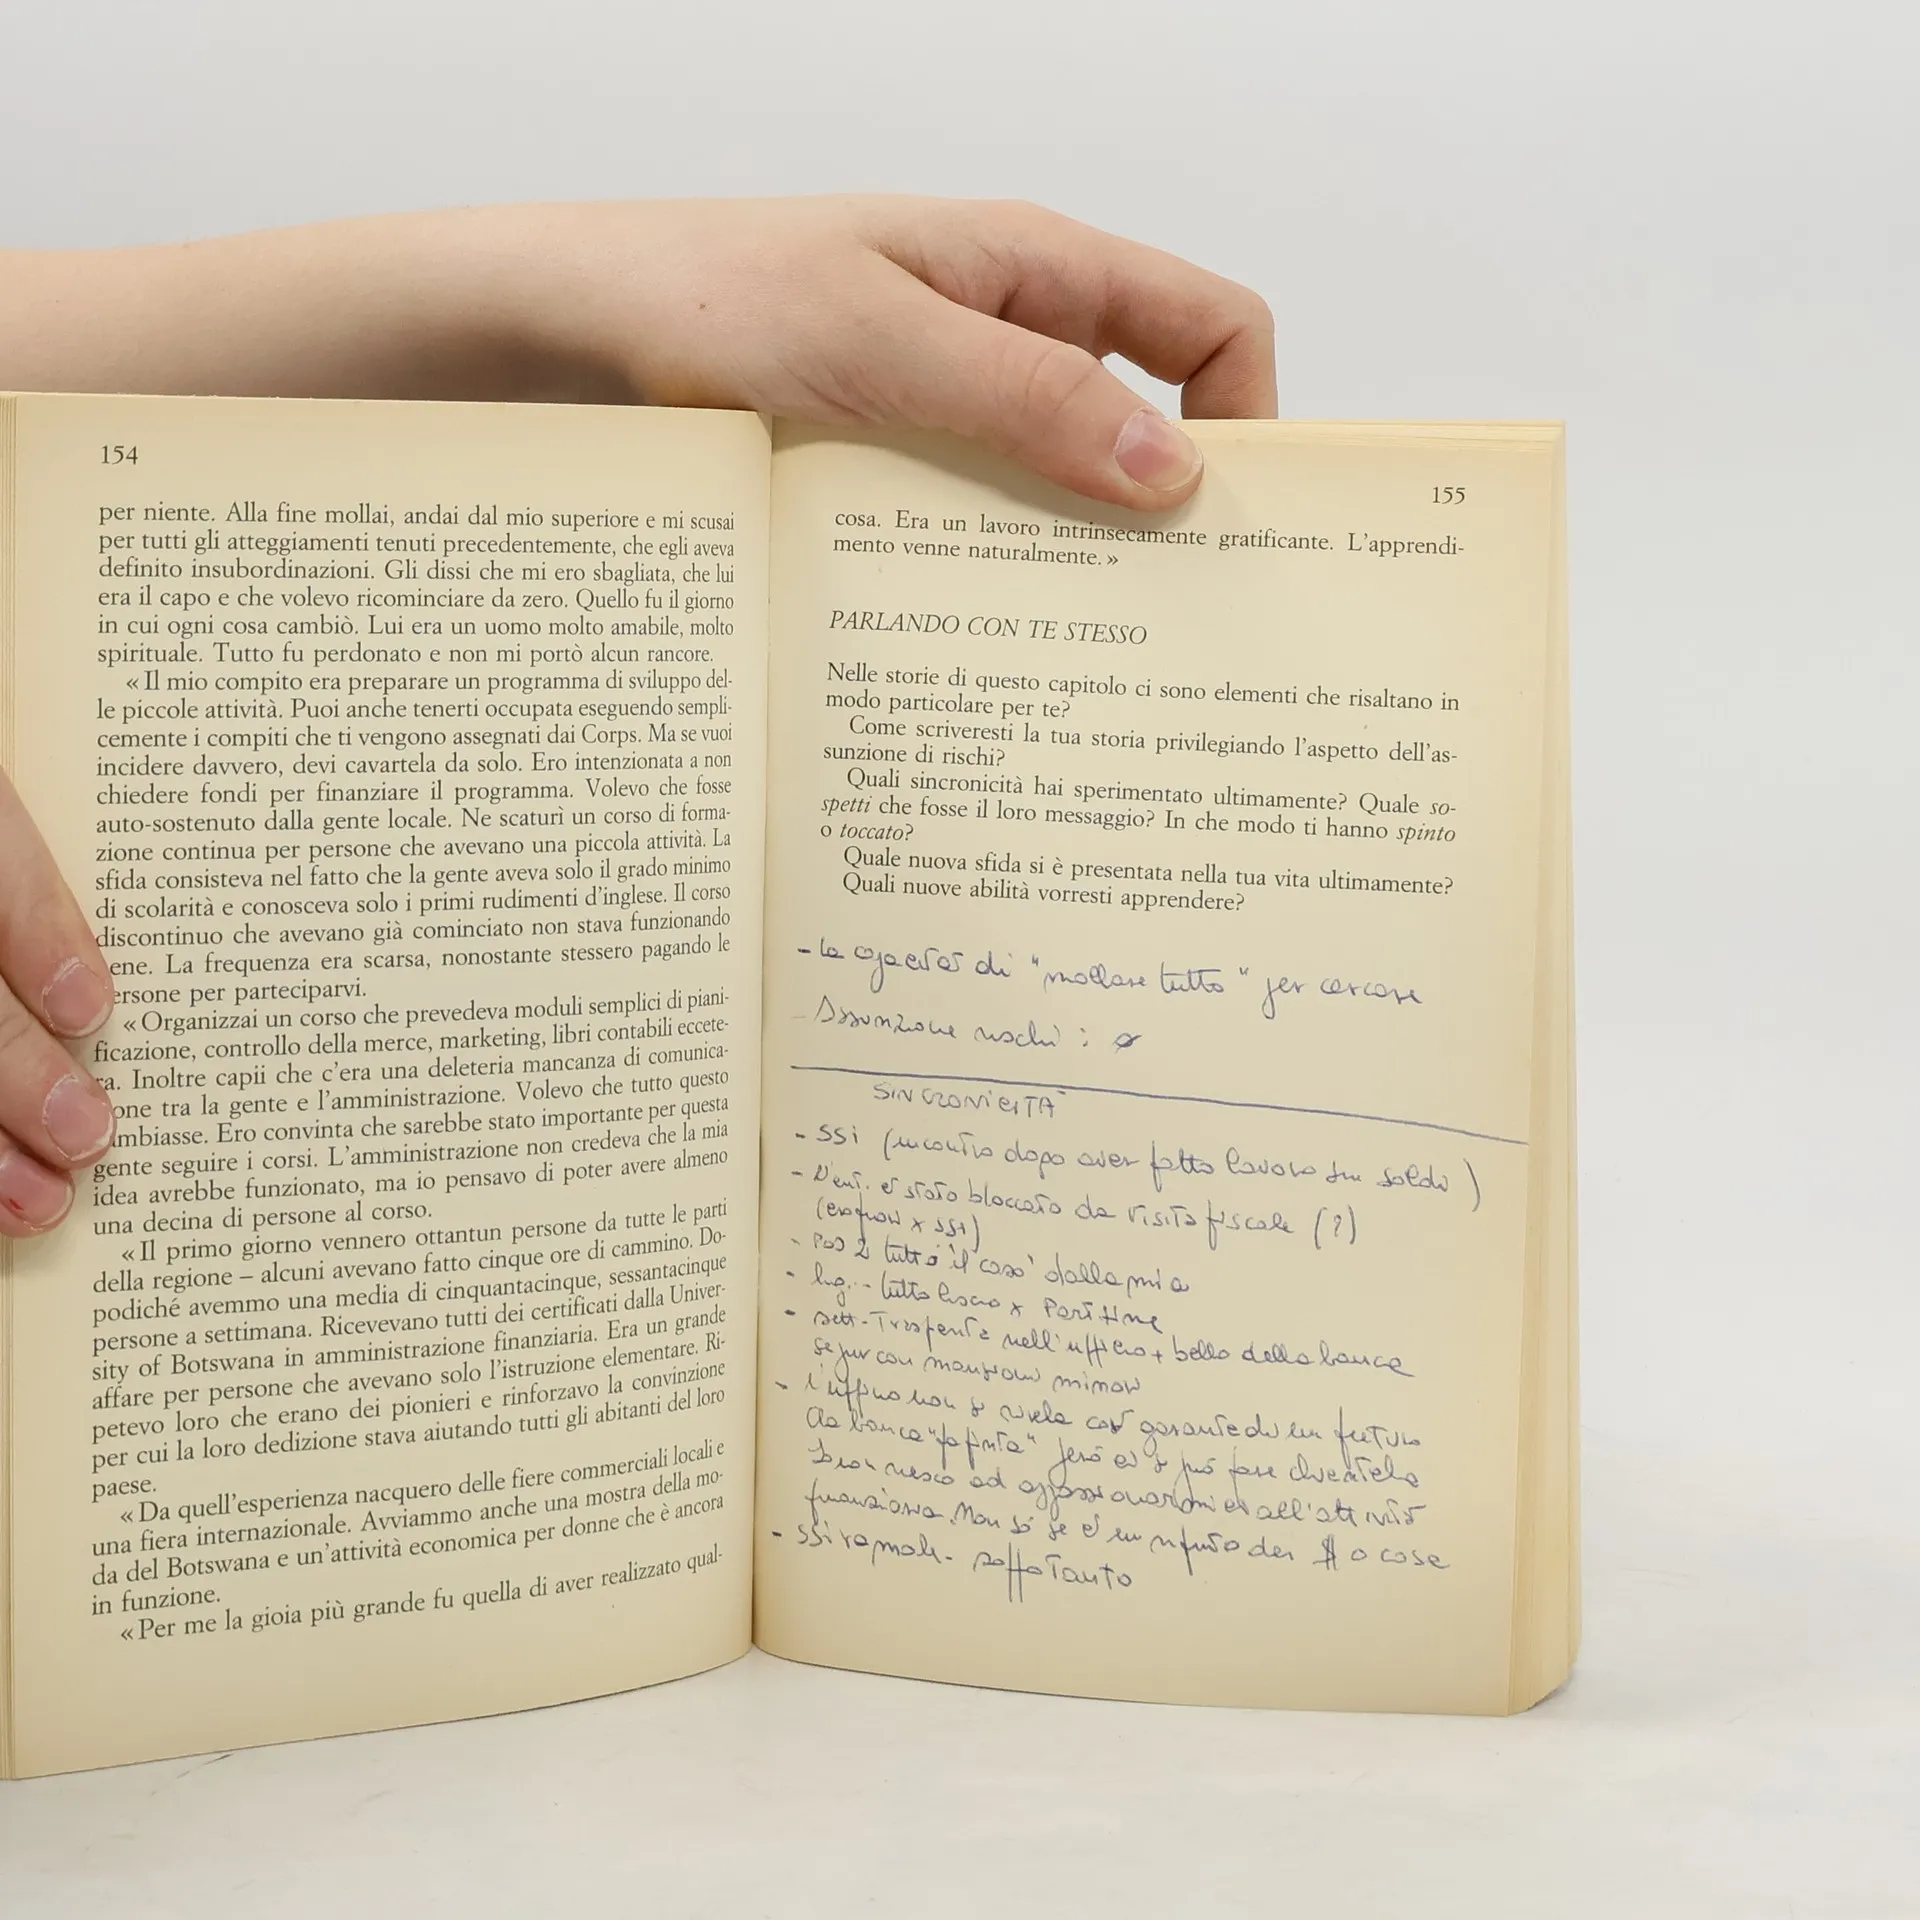 154
per niente. Alla fine mollai, andai dal mio superiore e mi scusai
per tutti gli atteggiamenti tenuti precedentemente, che egli aveva
definito insubordinazioni. Gli dissi che mi ero sbagliata, che lui
era il capo e che volevo ricominciare da zero. Quello fu il giorno
in cui ogni cosa cambiò. Lui era un uomo molto amabile, molto
spirituale. Tutto fu perdonato e non mi portò alcun rancore.
«Il mio compito era preparare un programma di sviluppo del-
le piccole attività. Puoi anche tenerti occupata eseguendo sempli-
cemente i compiti che ti vengono assegnati dai Corps. Ma se vuoi
incidere davvero, devi cavartela da solo. Ero intenzionata a non
chiedere fondi per finanziare il programma. Volevo che fosse
auto-sostenuto dalla gente locale. Ne scaturì un corso di forma-
zione continua per persone che avevano una piccola attività. La
sfida consisteva nel fatto che la gente aveva solo il grado minimo
di scolarità e conosceva solo i primi rudimenti d'inglese. Il corso
discontinuo che avevano già cominciato non stava funzionando
ene. La frequenza era scarsa, nonostante stessero pagando le
ersone per parteciparvi.
«Organizzai un corso che prevedeva moduli semplici di piani-
ficazione, controllo della merce, marketing, libri contabili eccete-
ra. Inoltre capii che c'era una deleteria mancanza di comunica-
one tra la gente e l'amministrazione. Volevo che tutto questo
mbiasse. Ero convinta che sarebbe stato importante per questa
gente seguire i corsi. L'amministrazione non credeva che la mia
idea avrebbe funzionato, ma io pensavo di poter avere almeno
una decina di persone al corso.
«Il primo giorno vennero ottantun persone da tutte le parti
della regione – alcuni avevano fatto cinque ore di cammino. Do-
podiché avemmo una media di cinquantacinque, sessantacinque
persone a settimana. Ricevevano tutti dei certificati dalla Univer-
sity of Botswana in amministrazione finanziaria. Era un grande
affare per persone che avevano solo l'istruzione elementare. Ri-
petevo loro che erano dei pionieri e rinforzavo la convinzione
per cui la loro dedizione stava aiutando tutti gli abitanti del loro
paese.
«Da quell'esperienza nacquero delle fiere commerciali locali e
una fiera internazionale. Avviammo anche una mostra della mo-
da del Botswana e un'attività economica per donne che è ancora
in funzione.
«Per me la gioia più grande fu quella di aver realizzato qual-
155
cosa. Era un lavoro intrinsecamente gratificante. L'apprendi-
mento venne naturalmente.»
PARLANDO CON TE STESSO
Nelle storie di questo capitolo ci sono elementi che risaltano in
modo particolare per te?
Come scriveresti la tua storia privilegiando l'aspetto dell'as-
sunzione di rischi?
Quali sincronicità hai sperimentato ultimamente? Quale so-
spetti che fosse il loro messaggio? In che modo ti hanno spinto
o toccato?
Quale nuova sfida si è presentata nella tua vita ultimamente?
Quali nuove abilità vorresti apprendere?
- la capacità di "mollare tutto" per cercare
- Assunzione rischi : ø
SINCRONICITÀ
- SSI (incontro dopo aver fatto lavoro sui soldi)
- è stato bloccato da visita fiscale (?)
x SSI)
- tutto dalla mia
- lug. - tutto liscio x Part time
- sett - Trasferita nell'ufficio + bello della banca
seppur con mansioni minori
- l'ufficio non si rivela così garante di un futuro
la banca però
non riesco ad appassionarmi all'attività
finanziaria. Non so se è un rifiuto dei $ o cose
- SSI